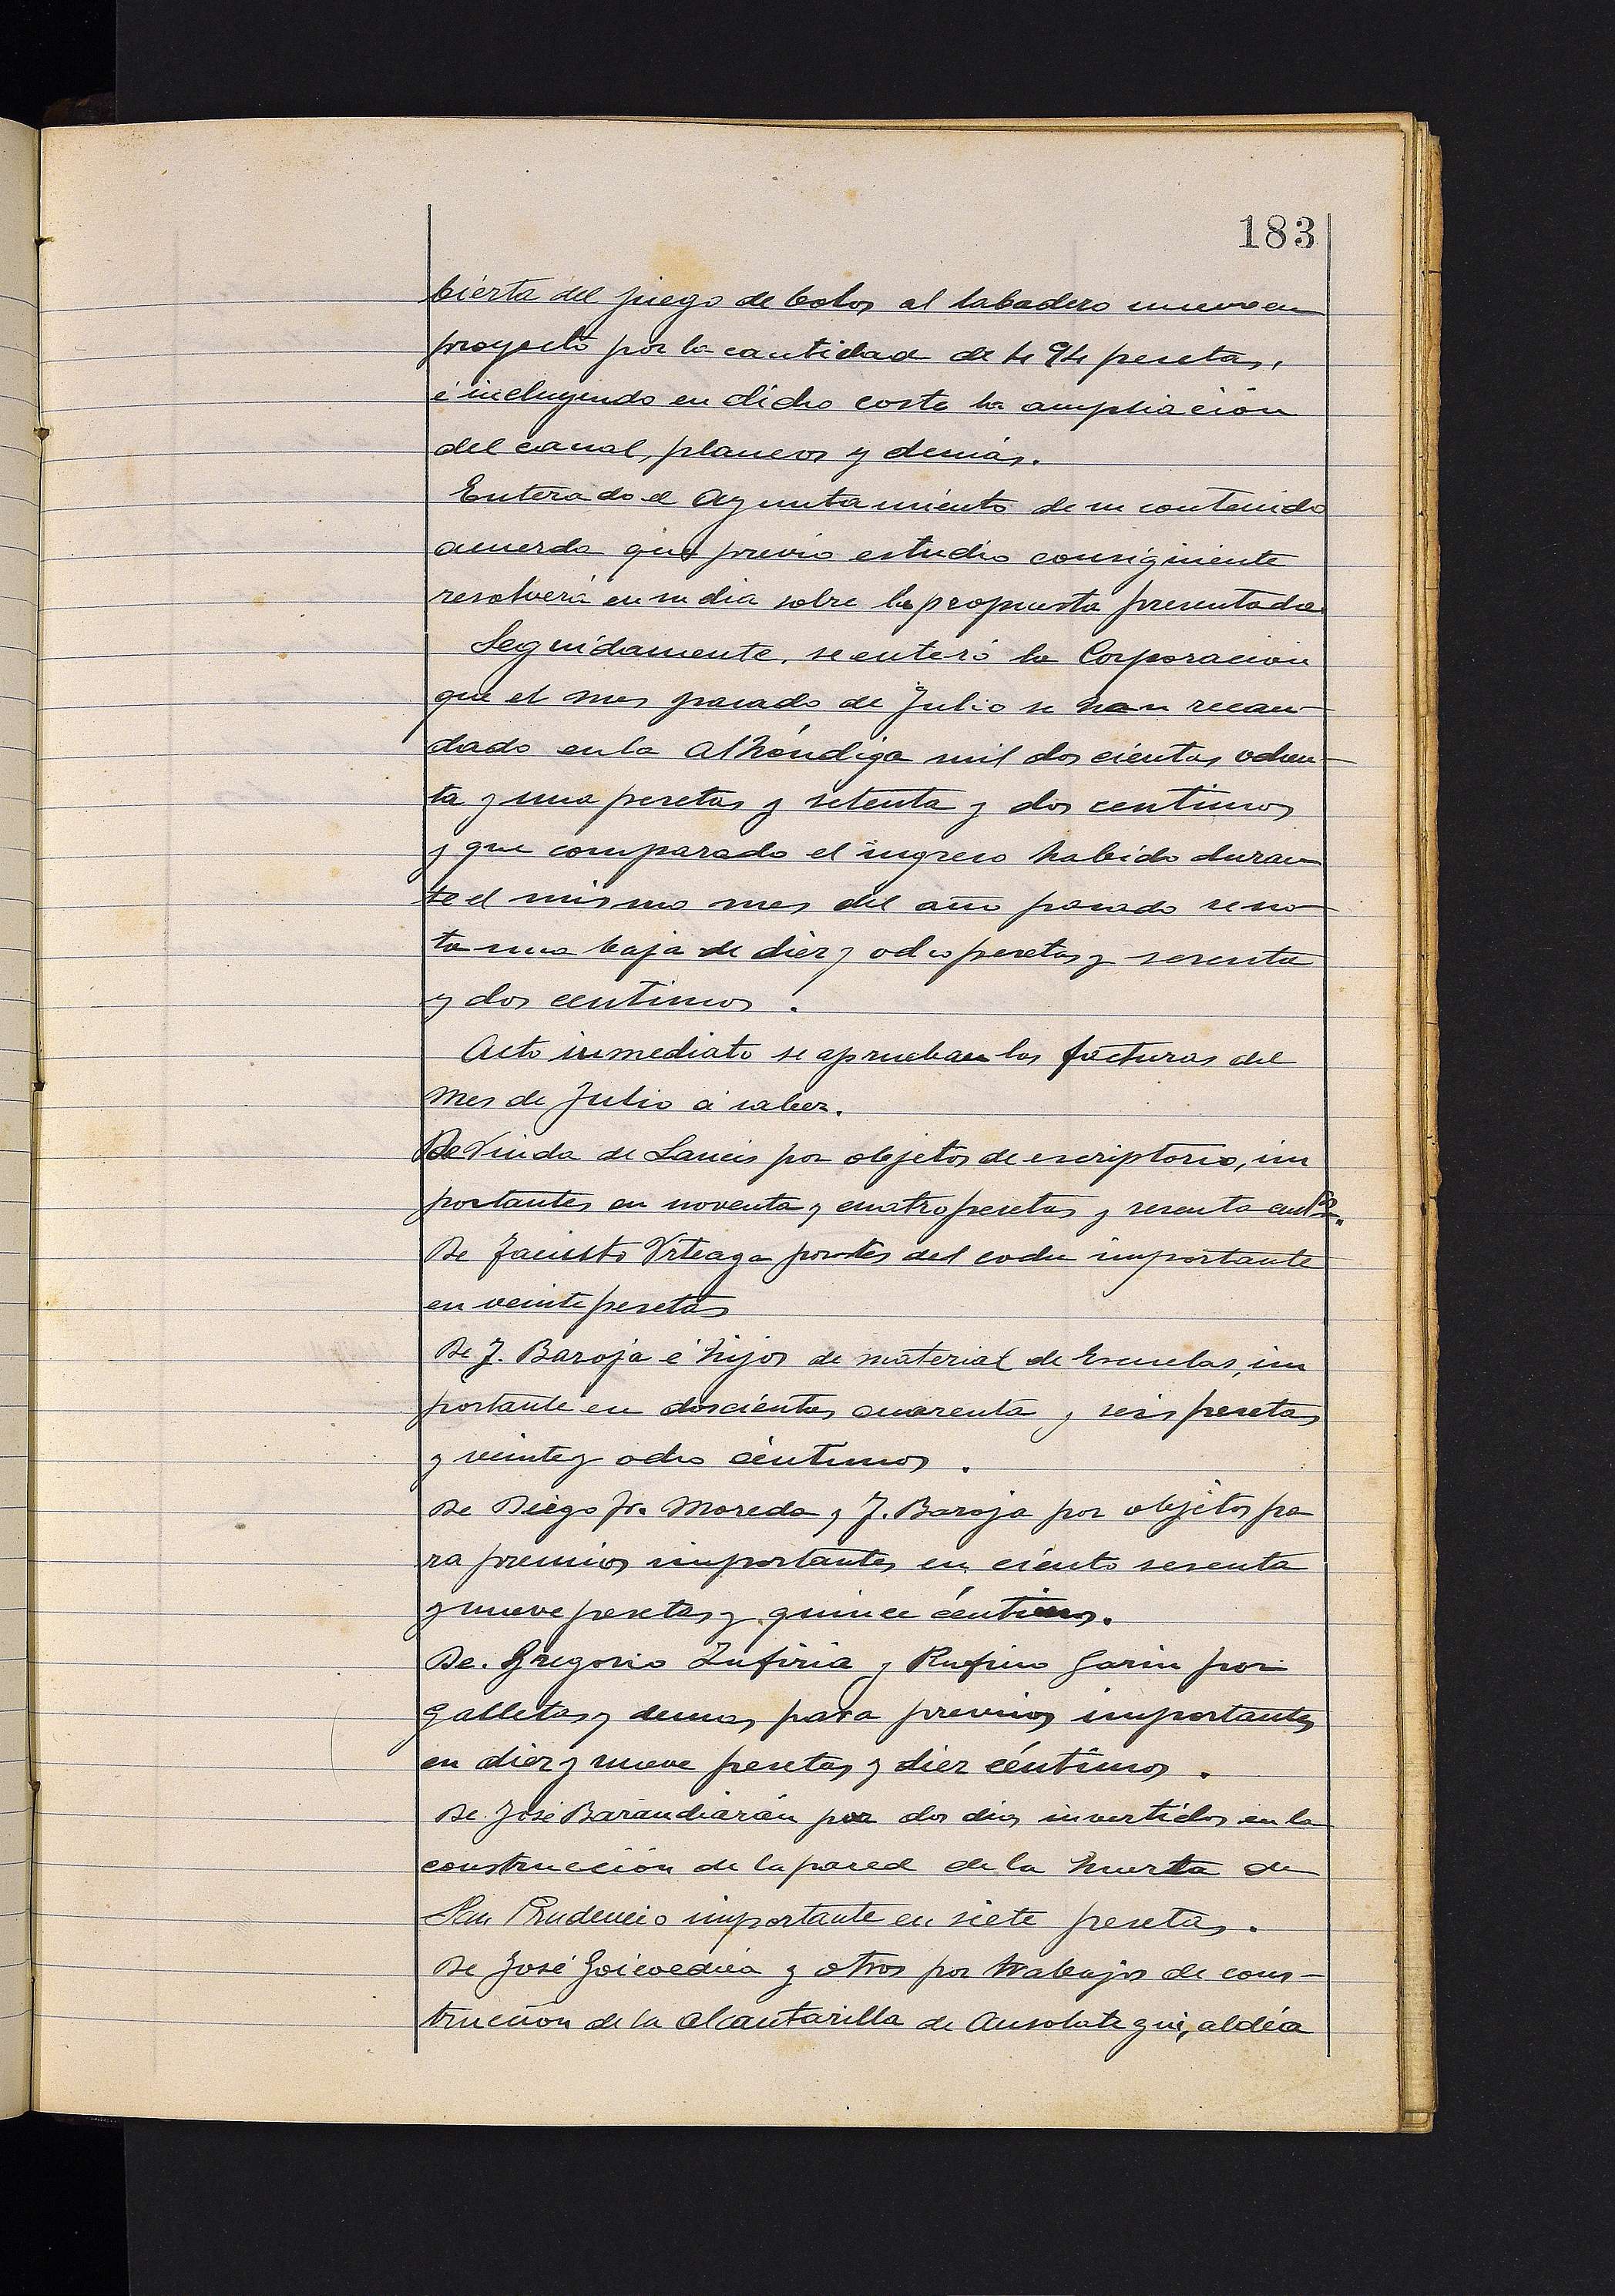 183
bierta del juego de bolos al labadero nuevo en
proyecto por la cantidad de 494 pesetas,
é incluyendo en dicho coste la ampliación
del canal, planeos y demás.
Enterado el Ayuntamiento de su contenido
acuerda que previo estudio consiguiente
resolverá en su dia sobre la propuesta presentada
Seguidamente, se enteró la Corporación
que el mes pasado de Julio se han recau-
dado en la Alhóndiga mil doscientas ochen-
ta y una pesetas y setenta y dos centimos
y que comparado el ingreso habido duran-
te el mismo mes del año pasado se no-
ta una baja de diez y ocho pesetas y sesenta
y dos centimos.
Acto inmediato se aprueban las facturas del
mes de Julio á saber.
De Viuda de por objetos de escriptorio, im
portantes en noventa y cuatro pesetas y sesenta cents.
De Fausto Urteaga portes del coche importante
en veinte pesetas
De J. Baroja é hijos de material de Escuelas, im
portante en doscientas cuarenta y seis pesetas
y veinte y ocho céntimos.
De Diego Fr. Moreda y J. Baroja por objetos pa
ra premios importantes en ciento sesenta
y nueve pesetas y quince céntimos.
De. Gregorio Zufiria y Rufino Garin por
galletas y demas para premios importantes
en diez y nueve pesetas y diez céntimos.
De José Barandiarán por dos dias invertidos en la
construcción de la pared de la huerta de
San Prudencio importante en siete pesetas.
De José Goicoechea y otros por trabajos de cons-
trucción de la alcantarilla de Ansolategui, aldéa